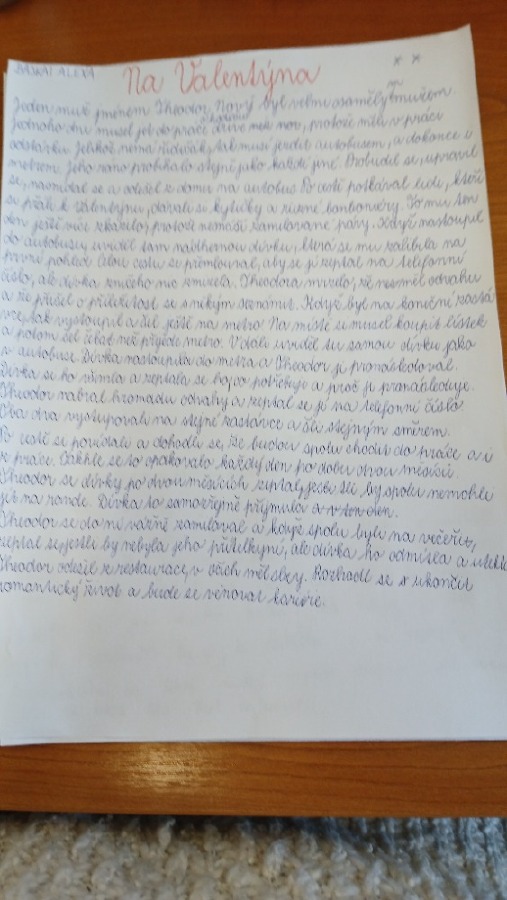 BASKAI ALEXA
Na Valentýna
Jeden muž jménem Theodor Nový byl velmi osamělým mužem.
Jednoho dne musel jet do práce dříve než, protože měli v práci
odstávku. Jelikož nemá řidičák, tak musí jezdit autobusem, a dokonce i
metrem. Jeho ráno probíhalo stejně jako každé jiné. Probudil se, upravil
se, nasnídal se a odešel z domu na autobus. Po cestě potkával lidi, kteří
si přáli k Valentýnu, dávali si kytičky a různé bonboniéry. To mu ten
den ještě více zkazilo, protože nesnáší zamilované páry. Když nastoupil
do autobusu, uviděl tam nádhernou dívku, která se mu zalíbila na
první pohled. Celou cestu se přemlouval, aby se jí zeptal na telefonní
číslo, ale dívka z ničeho nic zmizela. Theodora mrzelo, že nesměl odvahu
a že přišel o příležitost se s někým seznámit. Když byl na konečné zastá
vce, tak vystoupil a šel ještě na metro. Na místě si musel koupit lístek
a potom šel čekat než přijede metro. V dáli uviděl tu samou dívku jako
v autobuse. Dívka nastoupila do metra a Theodor ji pronásledoval.
Dívka se ho všimla a zeptala se ho co potřebuje a proč ji pronásleduje.
Theodor nabral hromadu odvahy a zeptal se jí na telefonní číslo.
Oba dva vystupovali na stejné zastávce a šli stejným směrem.
Po cestě si povídali a dohodli se, že budou spolu chodit do práce a i
z práce. Takhle se to opakovalo každý den po dobu dvou měsíců.
Theodor se dívky po dvou měsících zeptal, jestli by spolu nemohli
jít na rande. Dívka to samozřejmě přijmula
Theodor se do ní vážně zamiloval a když spolu byli na večeři,
zeptal se, jestli by nebyla jeho přítelkyní, ale dívka ho odmítla a utekla
Theodor odešel z restaurace, v očích měl slzy. Rozhodl se ukončit
romantický život a bude se věnovat kariéře.